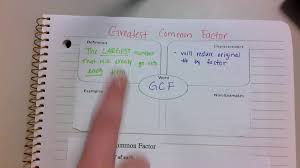 Greatest Common Factor
Definition
The LARGEST number
that will evenly go into
each
- will reduce original
# by factor.
Word
GCF
Examples
Non-Examples
Common Factor